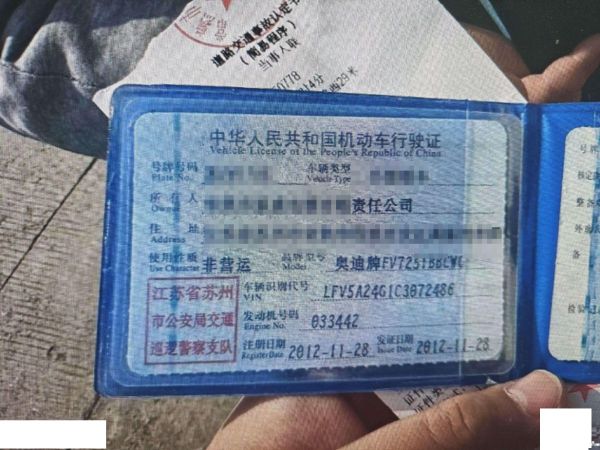 道路交通事故认定书
(简易程序)
当事人联
0778
14分
西29米
中华人民共和国机动车行驶证
Vehicle License of the People's Republic of China
号牌号码
Plate No.
车辆类型
Vehicle Type
所有人
Owner
责任公司
住址
Address
使用性质
Use Character
非营运
品牌型号
Model
奥迪牌FV7251BBCWG
江苏省苏州
市公安局交通
巡逻警察支队
车辆识别代号
VIN
LFV5A24G1C3072486
发动机号码
Engine No.
033442
注册日期
Register Date
2012-11-28
发证日期
Issue Date
2012-11-28
号牌
核定
整备
外廓
备
检验